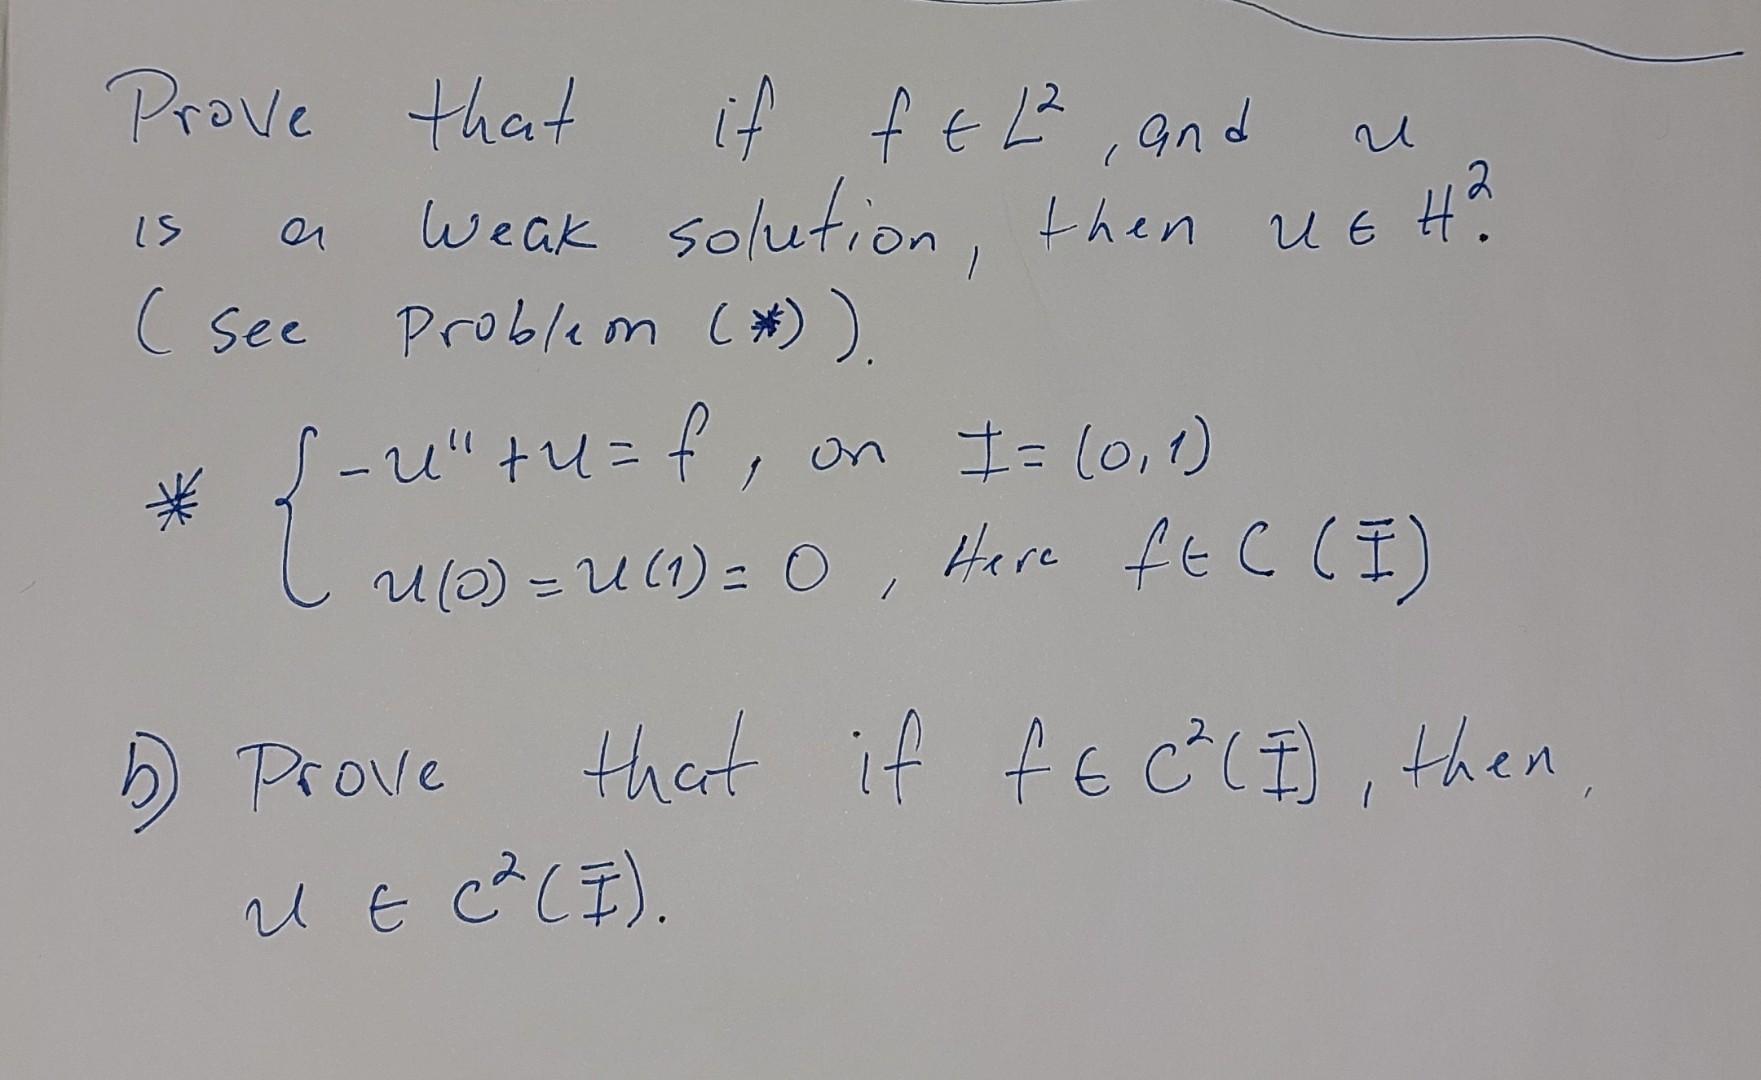 Prove that if f ∈ L², and u
is a weak solution, then u ∈ H².
(see problem (*)).
* { -u'' + u = f, on I = (0,1)
u(0) = u(1) = 0, Here f ∈ C(Ī)
b) Prove that if f ∈ C²(Ī), then,
u ∈ C²(Ī).